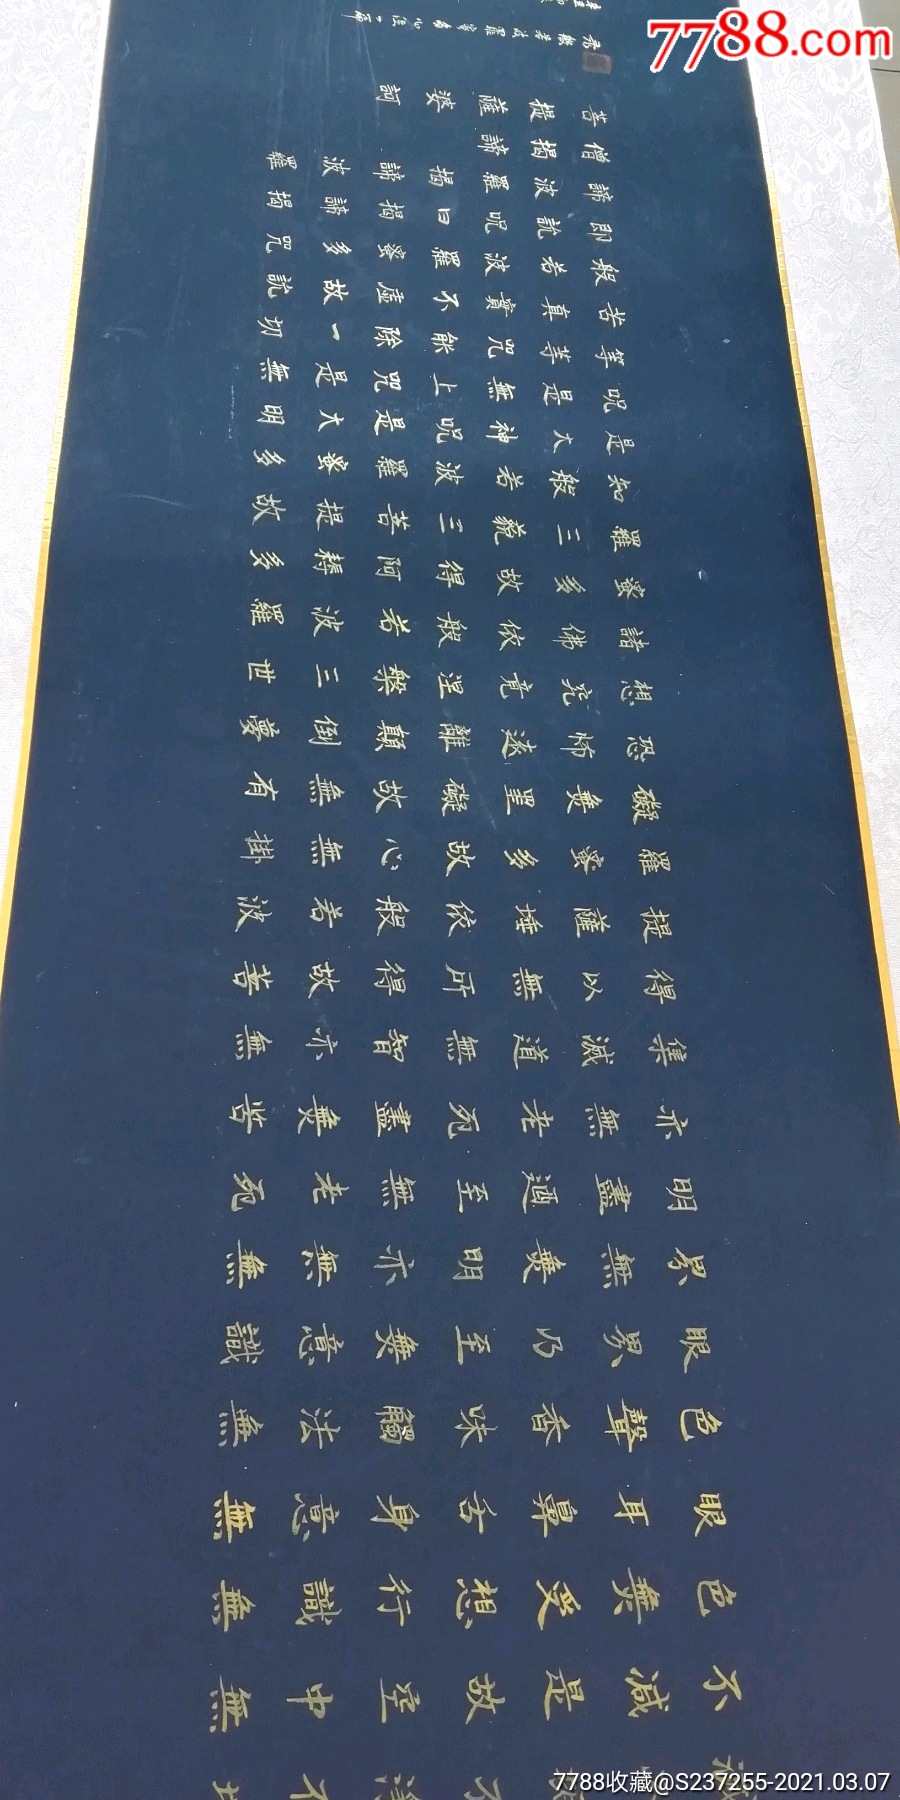 不減是故空中無
色無受想行識無
眼耳鼻舌身意無
色聲香味觸法無
眼界乃至無意識
界無無明亦無無
明盡迺至無老死
亦無老死盡無苦
集滅道無智亦無
得以無所得故菩
提薩埵依般若波
羅蜜多故心無掛
礙無罣礙故無有
恐怖遠離顛倒夢
想究竟涅槃三世
諸佛依般若波羅
蜜多故得阿耨多
羅三藐三菩提故
知般若波羅蜜多
是大神呪是大明
呪是無上咒是無
等等咒能除一切
苦真實不虛故說
般若波羅蜜多咒
即說呪曰揭諦揭
諦波羅揭諦波羅
僧揭諦
菩提薩婆訶
般若波羅蜜多心經一篇
7788.com
7788收藏@S237255-2021.03.07